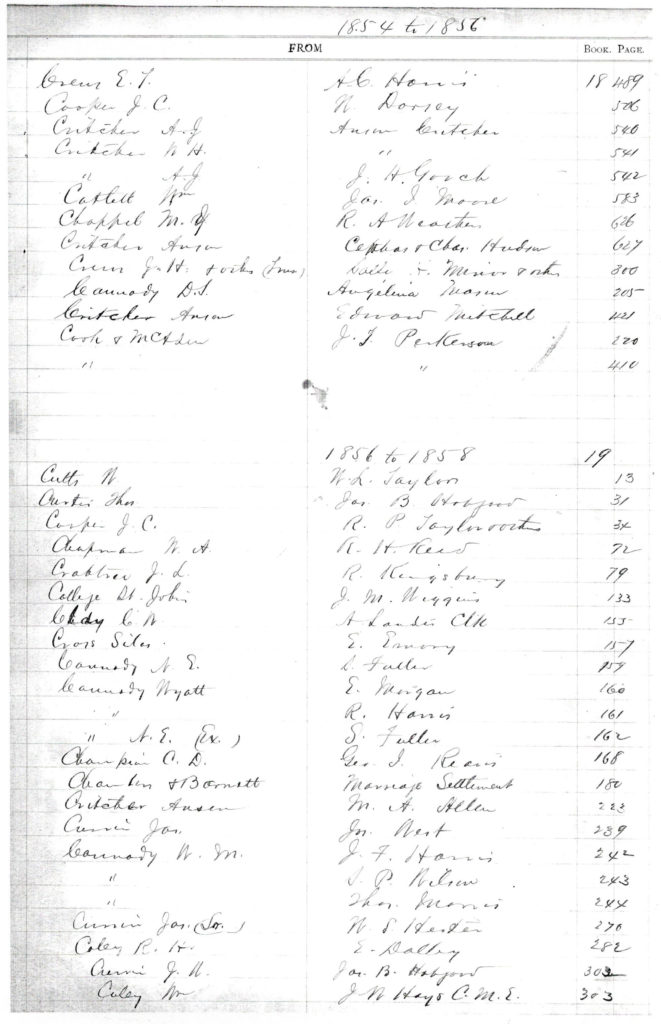 1854 to 1856
FROM BOOK. PAGE.
Crews E. T. A. C. Harris 18 489
Cooper J. C. W Dorsey 506
Critcher A. J Anson Critcher 540
Critcher W H. " 541
" A. J J. H. Gooch 542
Catlett Wm Jas. I Moore 583
Chappel M. Y R. A 626
Critcher Anson Cephas & Chas. Hudson 627
Crews J. H. & others Minor & others 300
Cannady D. S. Angelina Mason 205
Critcher Anson Edward Mitchell 421
Cook & McAden J. T. Perkerson 220
" " 410
1856 to 1858 19
Cutts W W. L. Taylor 13
Curtis Thos Jas. B Hobgood 31
Cooper J. C. R. P Taylor 34
Chapman W. A R. H. Read 72
Crabtree J. L. R. Kingsbury 79
College St. John J. M. Wiggins 133
C N A Landis Clk 155
Cross Silas. E. Emory 157
Cannady N. E. S. Fuller 159
Cannady Wyatt E. Morgan 160
" R. Harris 161
" N. E. (Ex.) S. Fuller 162
Champion C. D. Geo. I. Reavis 168
Chambers & Barnett Marriage Settlement 180
Critcher Anson M. A. Allen 223
Currin Jas. Jn. West 239
Cannady W. M. J. F. Harris 242
" S. P. Wilson 243
" Thos. Morris 244
Currin Jas. (Sr.) W. S Hester 270
Coley R. H. E. Dalby 282
Currin J. W. Jas. B. Hobgood 303
Coley Wm J W Hays C. M. E. 303